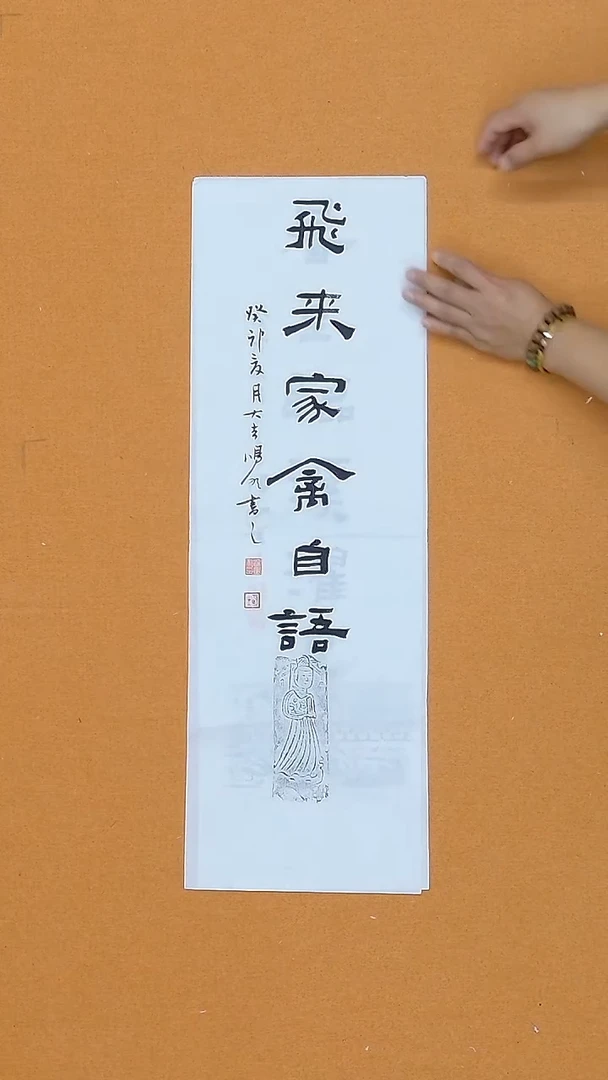 飛来家禽自語
癸卯夏月大吉鴻九書之